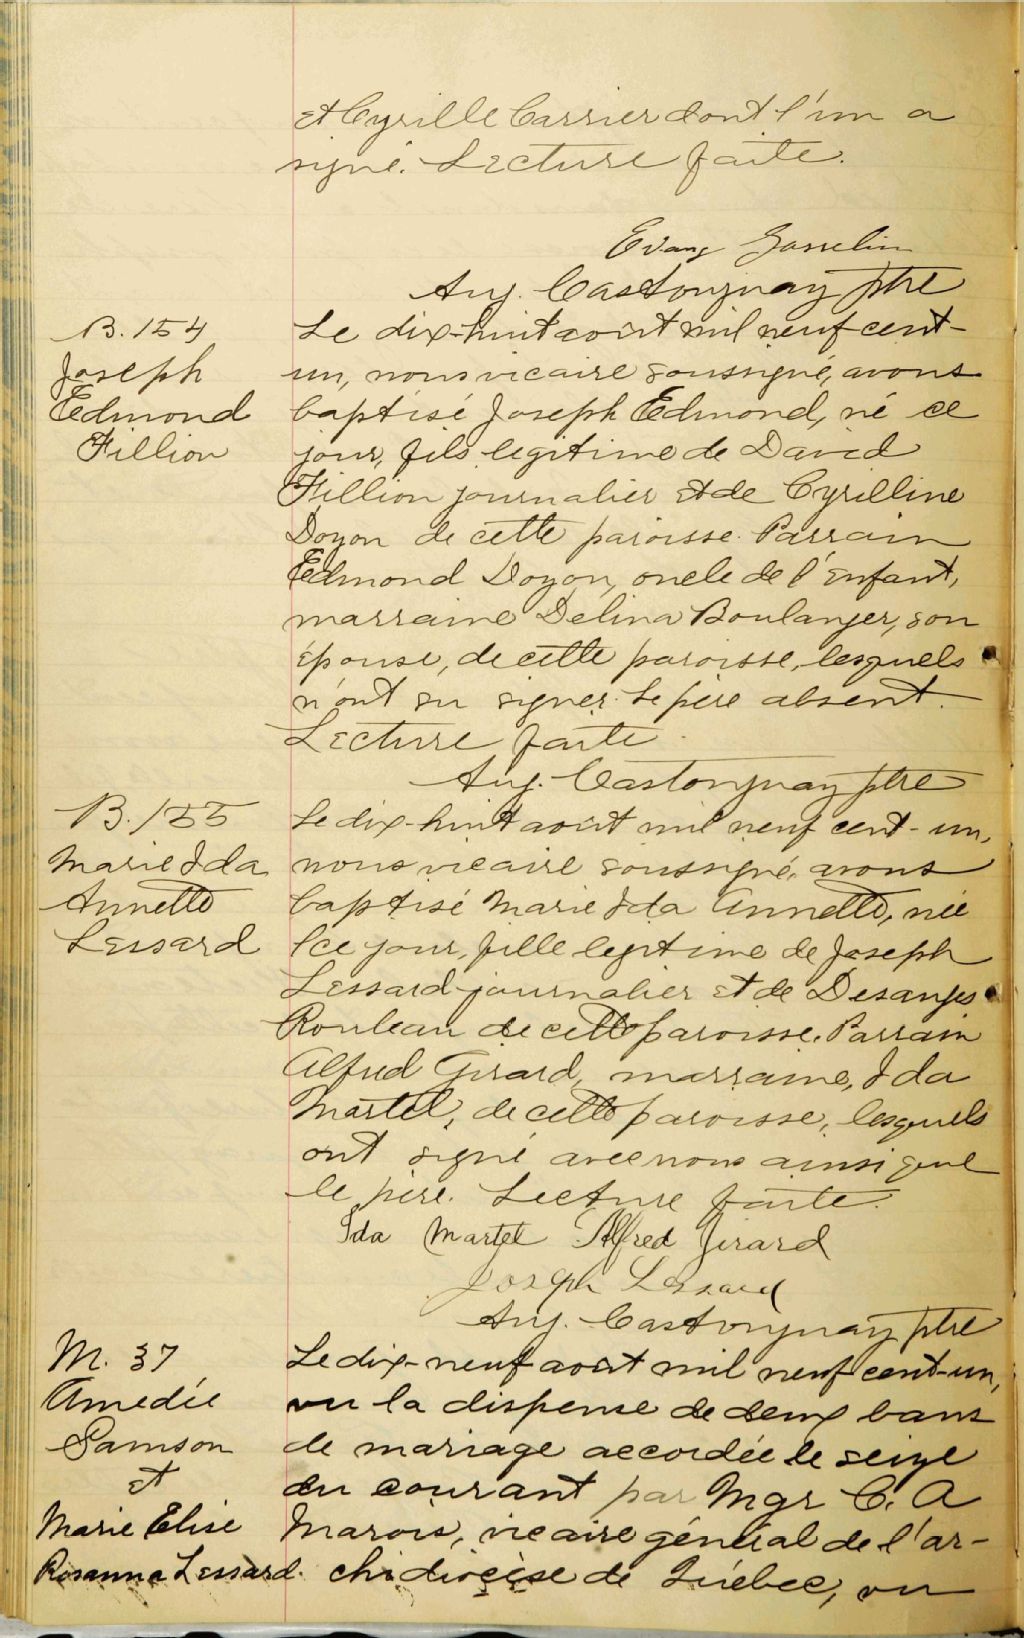 et Cyrille Carrier dont l'un a
signé. Lecture faite.
Evang Gosselin
Aug. Castonguay ptre
B. 154
Joseph
Edmond
Fillion
Le dix-huit août mil neuf cent-
un, nous vicaire soussigné, avons
baptisé Joseph Edmond, né ce
jour, fils legitime de David
Fillion journalier et de Cyrilline
Doyon de cette paroisse. Parrain
Edmond Doyon, oncle de l'enfant,
marraine Delina Boulanger, son
épouse, de cette paroisse, lesquels
n'ont su signer. Le père absent.
Lecture faite.
Aug. Castonguay ptre
B. 155
Marie Ida
Annette
Lessard
Le dix-huit août mil neuf cent-un,
nous vicaire soussigné, avons
baptisé Marie Ida Annette, née
ce jour, fille legitime de Joseph
Lessard journalier et de Desanges
Rouleau de cette paroisse. Parrain
Alfred Girard, marraine, Ida
Martel, de cette paroisse, lesquels
ont signé avec nous ainsi que
le père. Lecture faite.
Ida Martel Alfred Girard
Joseph Lessard
Aug. Castonguay ptre
M. 37
Amedée
Samson
et
Marie Elise
Rosanna Lessard.
Le dix-neuf août mil neuf cent-un,
vu la dispense de deux bans
de mariage accordée le seize
du courant par Mgr C. A
Marois, vicaire général de l'ar-
chidiocèse de Québec, vu